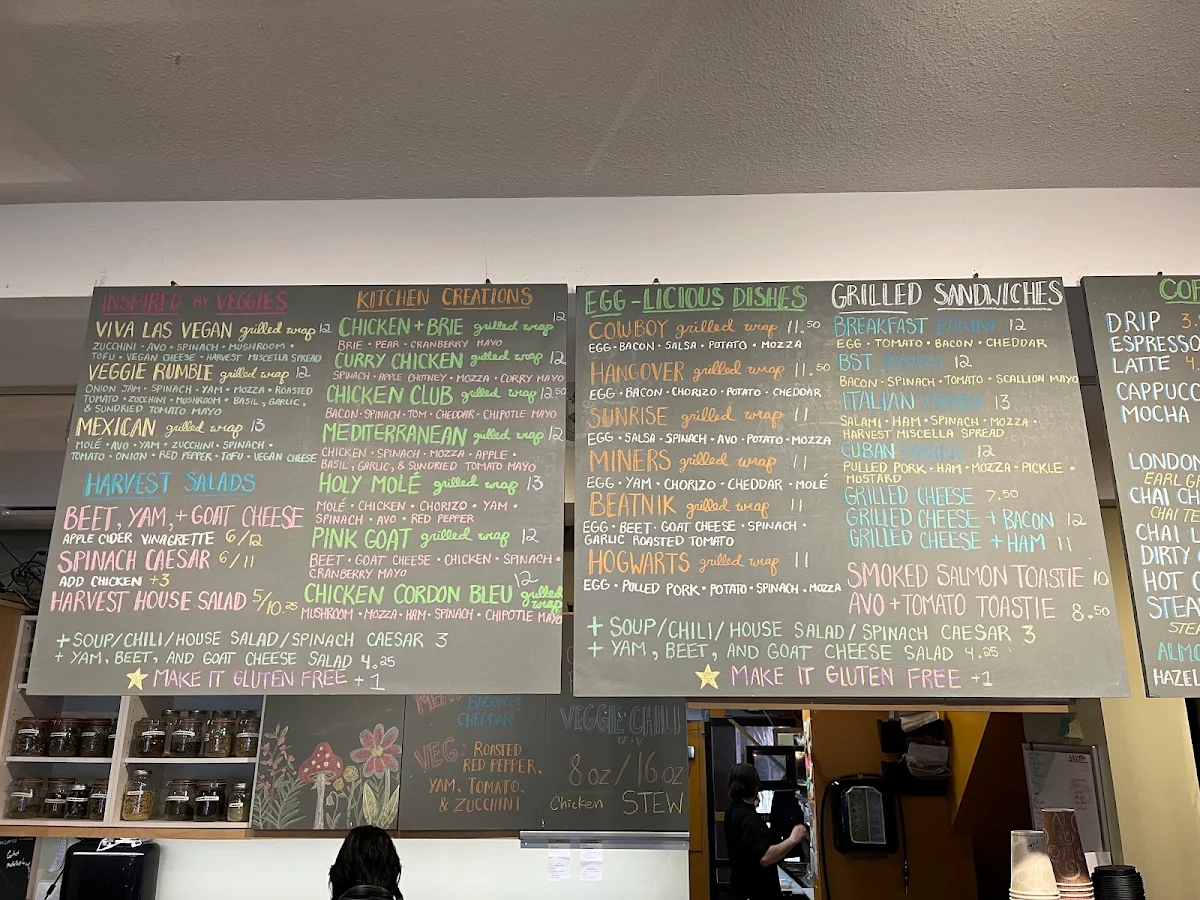 INSPIRED BY VEGGIES
VIVA LAS VEGAN grilled wrap 12
ZUCCHINI • AVO • SPINACH • MUSHROOM •
TOFU • VEGAN CHEESE • HARVEST MISCELLA SPREAD
VEGGIE RUMBLE grilled wrap 12
ONION JAM • SPINACH • YAM • MOZZA • ROASTED
TOMATO • ZUCCHINI • MUSHROOM • BASIL, GARLIC,
& SUNDRIED TOMATO MAYO
MEXICAN grilled wrap 13
MOLÉ • AVO • YAM • ZUCCHINI • SPINACH •
TOMATO • ONION • RED PEPPER • TOFU • VEGAN CHEESE
HARVEST SALADS
BEET, YAM, + GOAT CHEESE
APPLE CIDER VINAGRETTE 6/12
SPINACH CAESAR 6/11
ADD CHICKEN +3
HARVEST HOUSE SALAD 5/10.25
KITCHEN CREATIONS
CHICKEN + BRIE grilled wrap 12
BRIE • PEAR • CRANBERRY MAYO
CURRY CHICKEN grilled wrap 12
SPINACH • APPLE CHUTNEY • MOZZA • CURRY MAYO
CHICKEN CLUB grilled wrap 12.50
BACON • SPINACH • TOM • CHEDDAR • CHIPOTLE MAYO
MEDITERRANEAN grilled wrap 12
CHICKEN • SPINACH • MOZZA • APPLE •
BASIL, GARLIC, & SUNDRIED TOMATO MAYO
HOLY MOLÉ grilled wrap 13
MOLÉ • CHICKEN • CHORIZO • YAM •
SPINACH • AVO • RED PEPPER
PINK GOAT grilled wrap 12
BEET • GOAT CHEESE • CHICKEN • SPINACH •
CRANBERRY MAYO
CHICKEN CORDON BLEU grilled wrap 12
MUSHROOM • MOZZA • HAM • SPINACH • CHIPOTLE MAYO
+ SOUP/CHILI/HOUSE SALAD/SPINACH CAESAR 3
+ YAM, BEET, AND GOAT CHEESE SALAD 4.25
MAKE IT GLUTEN FREE +1
EGG-LICIOUS DISHES
COWBOY grilled wrap 11.50
EGG • BACON • SALSA • POTATO • MOZZA
HANGOVER grilled wrap 11.50
EGG • BACON • CHORIZO • POTATO • CHEDDAR
SUNRISE grilled wrap 11
EGG • SALSA • SPINACH • AVO • POTATO • MOZZA
MINERS grilled wrap 11
EGG • YAM • CHORIZO • CHEDDAR • MOLE
BEATNIK grilled wrap 11
EGG • BEET • GOAT CHEESE • SPINACH •
GARLIC ROASTED TOMATO
HOGWARTS grilled wrap 11
EGG • PULLED PORK • POTATO • SPINACH • MOZZA
GRILLED SANDWICHES
BREAKFAST PANINI 12
EGG • TOMATO • BACON • CHEDDAR
BST PANINI 12
BACON • SPINACH • TOMATO • SCALLION MAYO
ITALIAN PANINI 13
SALAMI • HAM • SPINACH • MOZZA •
HARVEST MISCELLA SPREAD
CUBAN PANINI 12
PULLED PORK • HAM • MOZZA • PICKLE •
MUSTARD
GRILLED CHEESE 7.50
GRILLED CHEESE + BACON 12
GRILLED CHEESE + HAM 11
SMOKED SALMON TOASTIE 10
AVO + TOMATO TOASTIE 8.50
+ SOUP/CHILI/HOUSE SALAD/SPINACH CAESAR 3
+ YAM, BEET, AND GOAT CHEESE SALAD 4.25
MAKE IT GLUTEN FREE +1
DRIP 3.
ESPRESSO
LATTE 4.
CAPPUCC
MOCHA
LONDON
EARL G
CHAI CH
CHAI TE
CHAI L
DIRTY
HOT C
STEA
ALMO
HAZEL
MEAT
BACON &
CHEDDAR
VEG: ROASTED
RED PEPPER,
YAM, TOMATO,
& ZUCCHINI
VEGGIE CHILI
GF + V
8oz/16oz
Chicken STEW